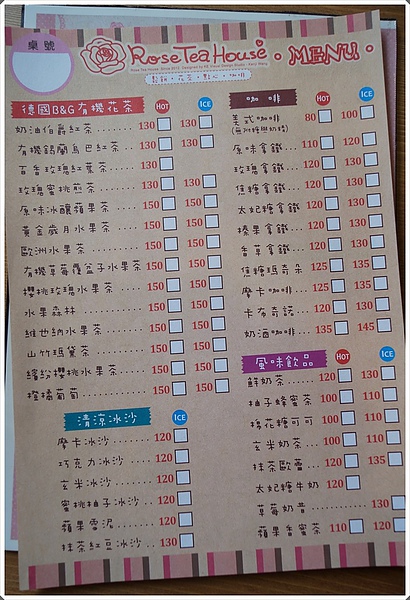 桌號
Rose Tea House · MENU ·
輕飲·花茶·點心·咖啡
德國B&G有機花茶 HOT ICE
奶油伯爵紅茶 130 130
有機錫蘭烏巴紅茶 130 130
百香玫瑰紅葉茶 130
玫瑰蜜桃煎茶 130 130
原味冰釀蘋果茶 150 150
黃金歲月水果茶 150 150
歐洲水果茶 150 150
有機草莓覆盆子水果茶 150 150
櫻桃玫瑰水果茶 150 150
水果森林 150 150
維也納水果茶 150 150
山竹瑪黛茶 150 150
繽紛櫻桃水果茶 150 150
橙橘葡萄 150 150
清涼冰沙 ICE
摩卡冰沙 120
巧克力冰沙 120
玄米冰沙 120
蜜桃柚子冰沙 120
蘋果雪泥 120
抹茶紅豆冰沙 130
咖啡 HOT ICE
美式咖啡 80 100
(無附糖與奶精)
原味拿鐵 110 120
玫瑰拿鐵 120 130
焦糖拿鐵 120 130
太妃糖拿鐵 120 130
榛果拿鐵 120 130
香草拿鐵 120 130
焦糖瑪奇朵 125 135
摩卡咖啡 125 135
卡布奇諾 120 130
奶酒咖啡 135 145
風味飲品 HOT ICE
鮮奶茶 120 130
柚子蜂蜜茶 100 110
棉花糖可可 100 110
玄米奶茶 100 110
抹茶歐蕾 120 135
太妃糖牛奶 120
草莓奶昔 130
蘋果香蜜茶 110 120